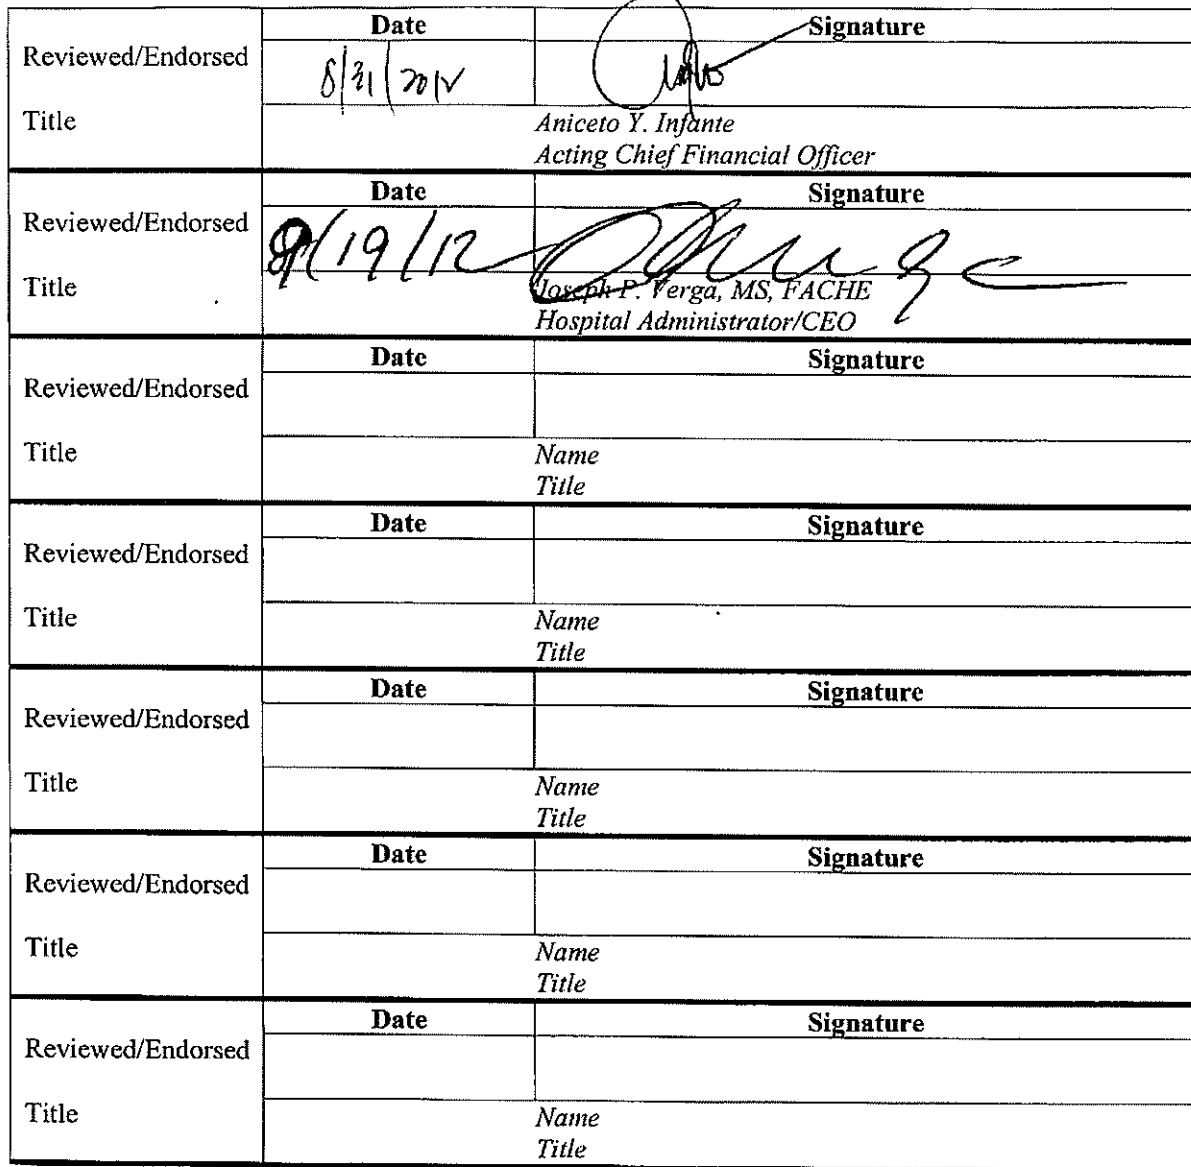 Date Signature
Reviewed/Endorsed
8/31/2012
Title
Aniceto Y. Infante
Acting Chief Financial Officer
Date Signature
Reviewed/Endorsed
9/19/12
Title
Joseph P. Verga, MS, FACHE
Hospital Administrator/CEO
Date Signature
Reviewed/Endorsed
Title
Name
Title
Date Signature
Reviewed/Endorsed
Title
Name
Title
Date Signature
Reviewed/Endorsed
Title
Name
Title
Date Signature
Reviewed/Endorsed
Title
Name
Title
Date Signature
Reviewed/Endorsed
Title
Name
Title